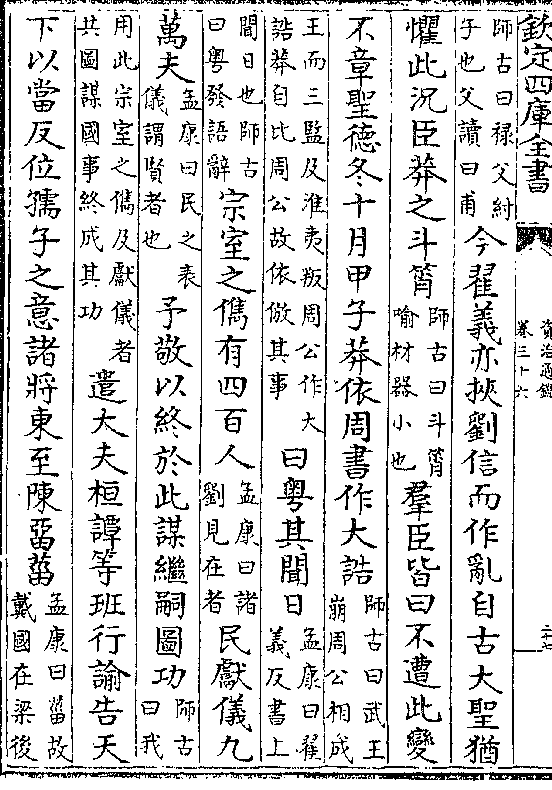 欽定四庫全書
資治通鑑
卷三十六
師古曰禄父紂子也父讀曰甫今翟義亦挾劉信而作亂自古大聖猶
懼此況臣莽之斗筲師古曰斗筲喻材器小也羣臣皆曰不遭此變
不章聖徳冬十月甲子莽依周書作大誥師古曰武王崩周公相成
王而三監及淮夷叛周公作大誥莽自比周公故依倣其事曰粤其聞日孟康曰翟義反書上
聞日也師古曰粤發語辭宗室之儁有四百人孟康曰諸劉見在者民獻儀九
萬夫孟康曰民之表儀謂賢者也予敬以終於此謀繼嗣圖功師古曰我
用此宗室之儁及獻儀者共圖謀國事終成其功遣大夫桓譚等班行諭告天
下以當反位孺子之意諸將東至陳畱菑孟康曰菑故戴國在梁後